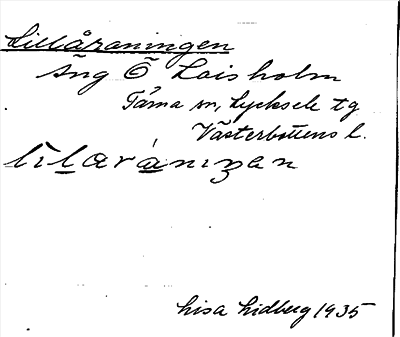 Lillåraningen
äng Ö Laisholm
Tärna sn, Lycksele tg
Västerbottens l.
Lisa Lidberg 1935